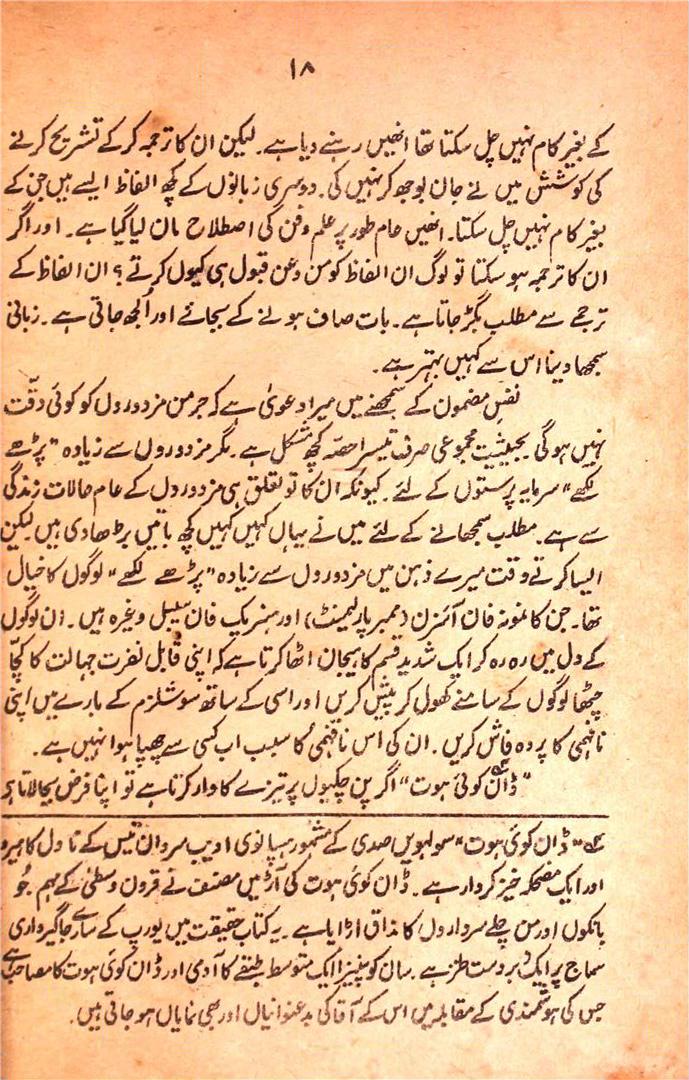 ۱۸
کے بغیر کام نہیں چل سکتا تھا انھیں رہنے دیا ہے۔ لیکن ان کا ترجمہ کر کے تشریح کرنے
کی کوشش میں نے جان بوجھ کر نہیں کی۔ دوسری زبانوں کے کچھ الفاظ ایسے ہیں جن کے
بغیر کام نہیں چل سکتا۔ انھیں عام طور پر علم و فن کی اصطلاح مان لیا گیا ہے۔ اور اگر
ان کا ترجمہ ہو سکتا تو لوگ ان الفاظ کو من و عن قبول ہی کیوں کرتے؟ ان الفاظ کے
ترجمے سے مطلب بگڑ جاتا ہے۔ بات صاف ہونے کے بجائے اور اُلجھ جاتی ہے۔ زبانی
سمجھا دینا اس سے کہیں بہتر ہے۔
نفسِ مضمون کے سمجھنے میں میرا دعویٰ ہے کہ جرمن مزدوروں کو کوئی دقّت
نہیں ہوگی۔ بحیثیت مجموعی صرف تیسرا حصّہ کچھ مشکل ہے۔ مگر مزدوروں سے زیادہ "پڑھے
لکھے" سرمایہ پرستوں کے لئے۔ کیونکہ ان کا تو تعلق ہی مزدوروں کے عام حالات زندگی
سے ہے۔ مطلب سمجھانے کے لئے میں نے یہاں کہیں کہیں کچھ باتیں بڑھا دی ہیں لیکن
ایسا کرتے وقت میرے ذہن میں مزدوروں سے زیادہ "پڑھے لکھے" لوگوں کا خیال
تھا۔ جن کا نمونہ فان آئنرن (ممبر پارلیمنٹ) اور ہنریک فان سیبل وغیرہ ہیں۔ ان لوگوں
کے دل میں رہ رہ کر ایک شدید قسم کا ہیجان اٹھا کرتا ہے کہ اپنی قابل نفرت جہالت کا کچّا
چٹھا لوگوں کے سامنے کھول کر پیش کریں اور اسی کے ساتھ سوشلزم کے بارے میں اپنی
نافہمی کا پردہ فاش کریں۔ ان کی اس نافہمی کا سبب اب کسی سے چھپا ہوا نہیں ہے۔
"ڈان کوئی ہوت" اگر پن چکیوں پر نیزے کا وار کرتا ہے تو اپنا فرض بجا لاتا ہے
"ڈان کوئی ہوت" سولہویں صدی کے مشہور ہسپانوی ادیب سروان تیس کے ناول کا ہیرو
اور ایک مضحکہ خیز کردار ہے۔ ڈان کوئی ہوت کی آڑ میں مصنف نے قرون وسطیٰ کے مہم جُو
بانکوں اور من چلے سرداروں کا مذاق اڑایا ہے۔ یہ کتاب حقیقت میں یورپ کے سارے جاگیرداری
سماج پر ایک زبردست طنز ہے۔ سان کو پینزا ایک متوسط طبقے کا آدمی اور ڈان کوئی ہوت کا مصاحب ہے
جس کی ہوشمندی کے مقابلہ میں اس کے آقا کی بد عنوانیاں اور بھی نمایاں ہو جاتی ہیں۔